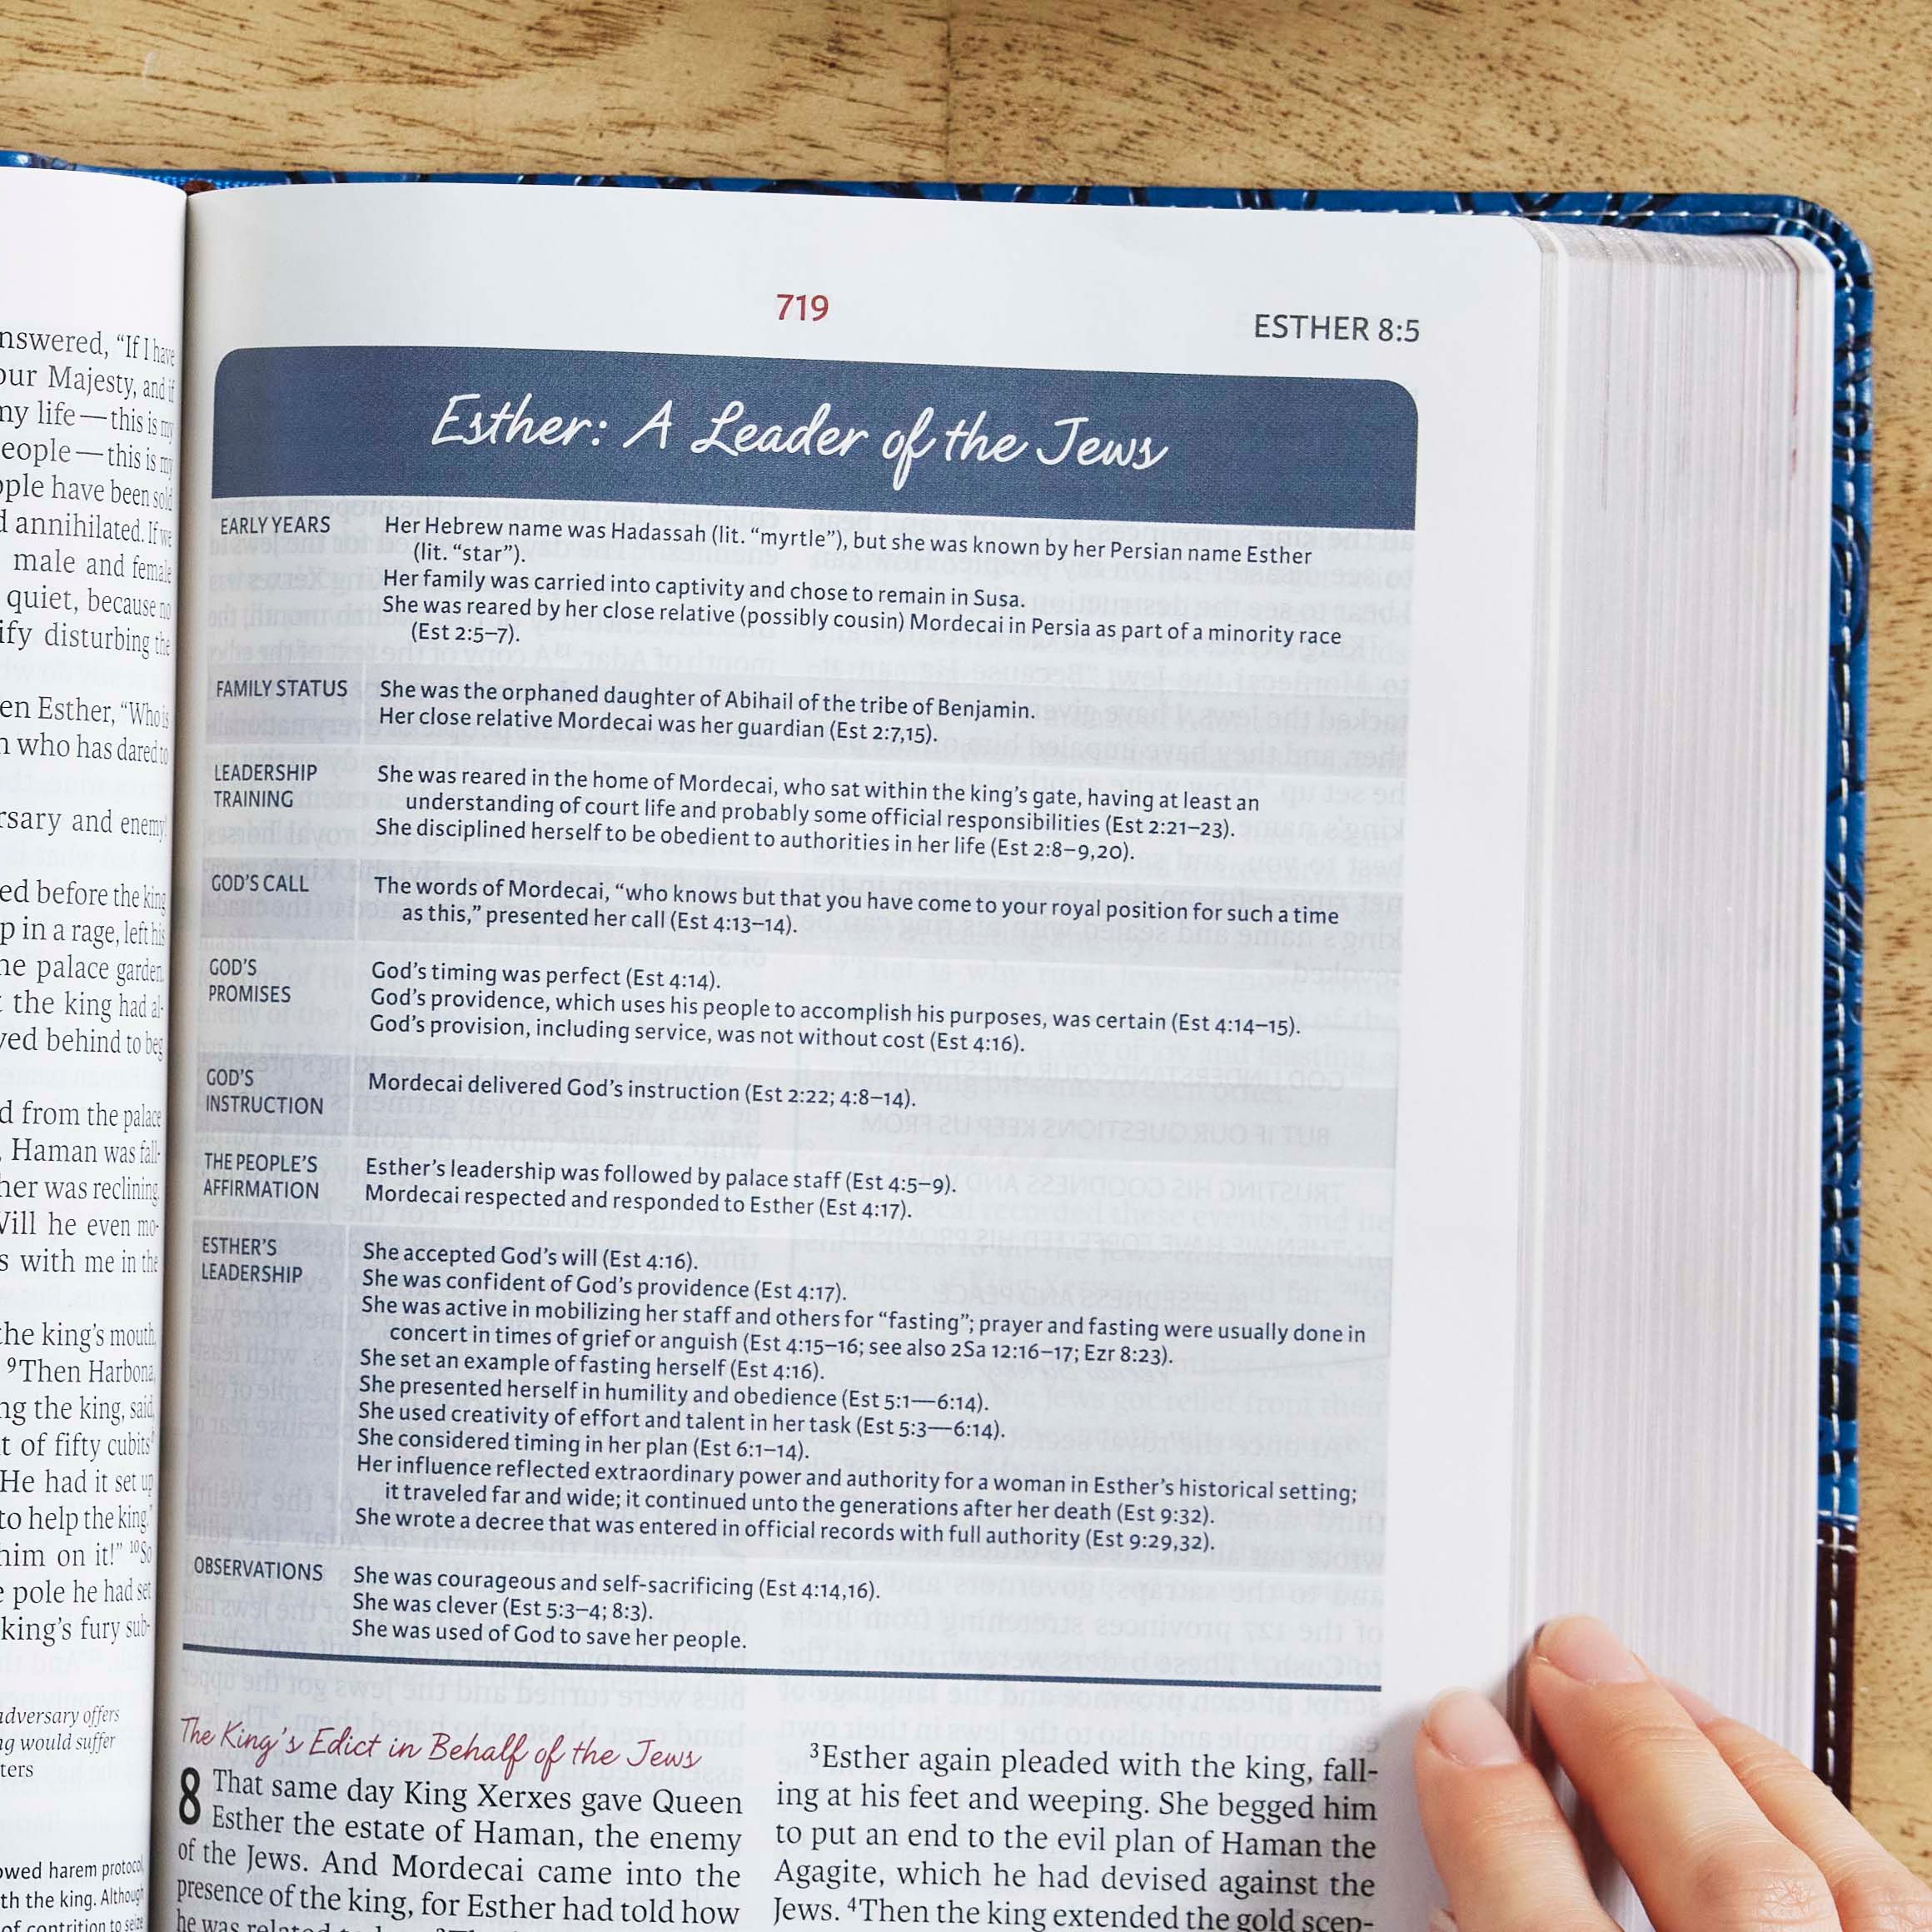 nswered, “If I have
our Majesty, and if
my life—this is my
eople—this is my
ople have been sold
d annihilated. If we
male and female
quiet, because no
ify disturbing the
en Esther, “Who is
n who has dared to
rsary and enemy!
ed before the king
p in a rage, left his
he palace garden.
t the king had al-
yed behind to beg
d from the palace
, Haman was fall-
her was reclining.
Will he even mo-
s with me in the
the king’s mouth,
⁹Then Harbona,
ng the king, said,
t of fifty cubits
He had it set up
to help the king.”
him on it!” ¹⁰So
e pole he had set
king’s fury sub-
adversary offers
ng would suffer
ters
owed harem protocol,
th the king. Although
of contrition to seize
719
ESTHER 8:5
Esther: A Leader of the Jews
EARLY YEARS
Her Hebrew name was Hadassah (lit. “myrtle”), but she was known by her Persian name Esther
(lit. “star”).
Her family was carried into captivity and chose to remain in Susa.
She was reared by her close relative (possibly cousin) Mordecai in Persia as part of a minority race
(Est 2:5–7).
FAMILY STATUS
She was the orphaned daughter of Abihail of the tribe of Benjamin.
Her close relative Mordecai was her guardian (Est 2:7,15).
LEADERSHIP
TRAINING
She was reared in the home of Mordecai, who sat within the king’s gate, having at least an
understanding of court life and probably some official responsibilities (Est 2:21–23).
She disciplined herself to be obedient to authorities in her life (Est 2:8–9,20).
GOD’S CALL
The words of Mordecai, “who knows but that you have come to your royal position for such a time
as this,” presented her call (Est 4:13–14).
GOD’S
PROMISES
God’s timing was perfect (Est 4:14).
God’s providence, which uses his people to accomplish his purposes, was certain (Est 4:14–15).
God’s provision, including service, was not without cost (Est 4:16).
GOD’S
INSTRUCTION
Mordecai delivered God’s instruction (Est 2:22; 4:8–14).
THE PEOPLE’S
AFFIRMATION
Esther’s leadership was followed by palace staff (Est 4:5–9).
Mordecai respected and responded to Esther (Est 4:17).
ESTHER’S
LEADERSHIP
She accepted God’s will (Est 4:16).
She was confident of God’s providence (Est 4:17).
She was active in mobilizing her staff and others for “fasting”; prayer and fasting were usually done in
concert in times of grief or anguish (Est 4:15–16; see also 2Sa 12:16–17; Ezr 8:23).
She set an example of fasting herself (Est 4:16).
She presented herself in humility and obedience (Est 5:1—6:14).
She used creativity of effort and talent in her task (Est 5:3—6:14).
She considered timing in her plan (Est 6:1–14).
Her influence reflected extraordinary power and authority for a woman in Esther’s historical setting;
it traveled far and wide; it continued unto the generations after her death (Est 9:32).
She wrote a decree that was entered in official records with full authority (Est 9:29,32).
OBSERVATIONS
She was courageous and self-sacrificing (Est 4:14,16).
She was clever (Est 5:3–4; 8:3).
She was used of God to save her people.
The King’s Edict in Behalf of the Jews
8 That same day King Xerxes gave Queen
Esther the estate of Haman, the enemy
of the Jews. And Mordecai came into the
presence of the king, for Esther had told how
he was related
³Esther again pleaded with the king, fall-
ing at his feet and weeping. She begged him
to put an end to the evil plan of Haman the
Agagite, which he had devised against the
Jews. ⁴Then the king extended the gold scep-